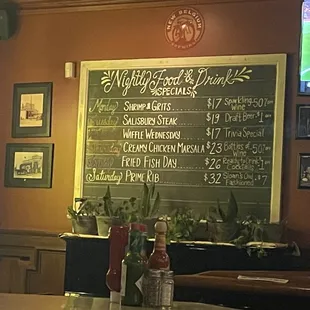 NEW BELGIUM
Nightly Food & Drink
SPECIALS
Monday Shrimp & Grits... $17 Sparkling Wine 50% off
Salisbury Steak $19 Draft Beer $1
Waffle Wednesday $17 Trivia Special
Creamy Chicken Marsala $23 Bottles of Wine 50% off
Fried Fish Day $26 Ready to Drink Cocktail
Saturday Prime Rib $32 Sloan's Own Old Fashioned $7